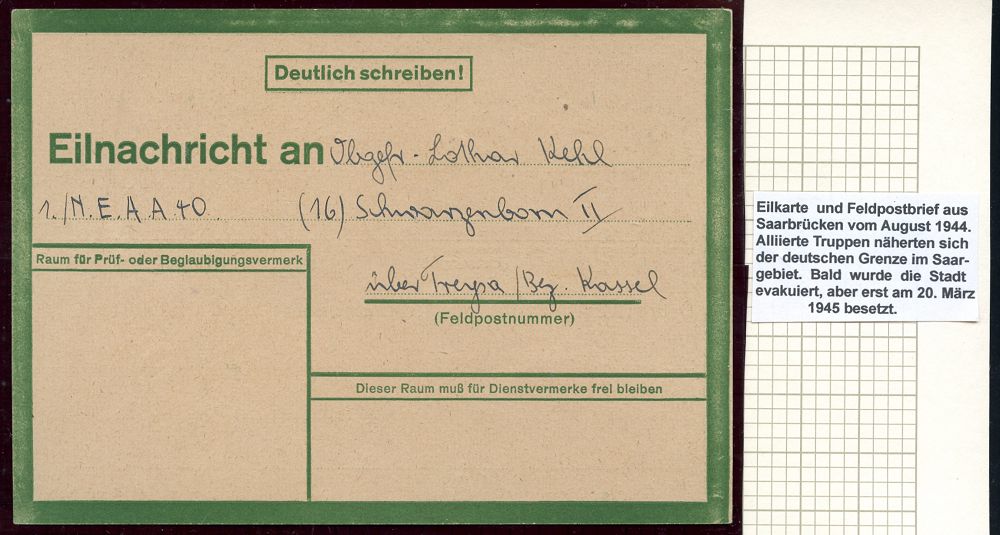 Deutlich schreiben!
Eilnachricht an Obgefr. Lothar Kehl
1./N.E.A.A 40 (16) Schwarzenborn II
Raum für Prüf- oder Beglaubigungsvermerk
über Treysa/Bez. Kassel
(Feldpostnummer)
Dieser Raum muß für Dienstvermerke frei bleiben
Eilkarte und Feldpostbrief aus
Saarbrücken vom August 1944.
Alliierte Truppen näherten sich
der deutschen Grenze im Saar-
gebiet. Bald wurde die Stadt
evakuiert, aber erst am 20. März
1945 besetzt.